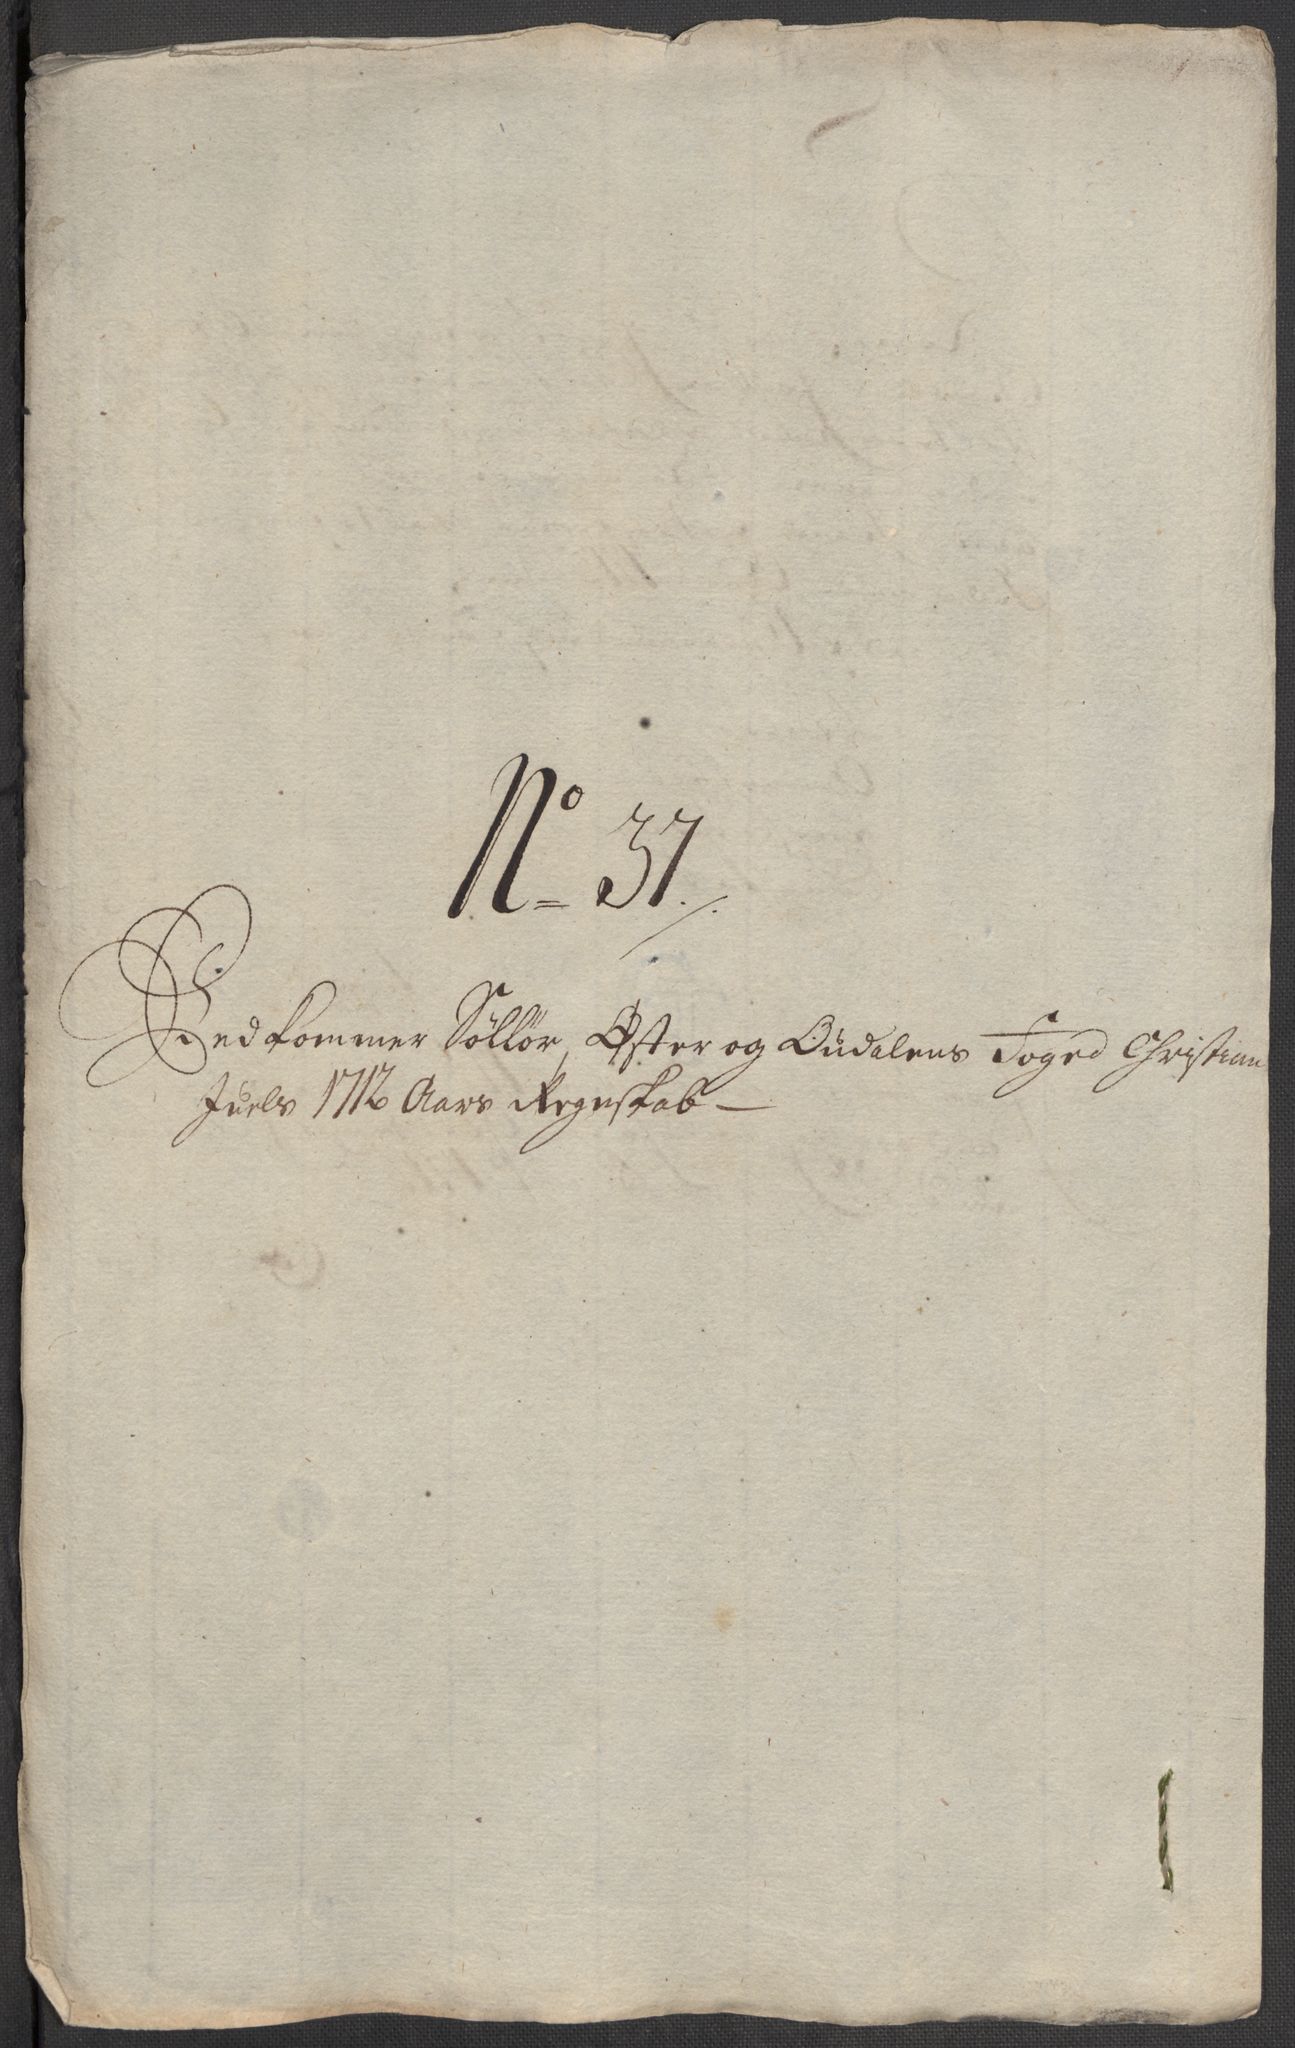 No 37.
Vedkommer Söllör, Øster og Oüdalens Foged Christian
Juels 1712 Aars Regnskab —